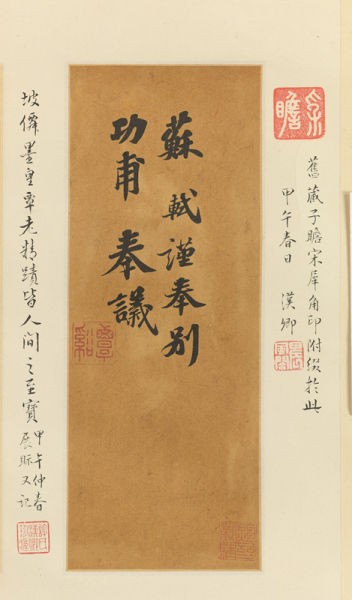 子瞻
舊藏子瞻宋犀角印附綴於此
甲午春日 漢卿
蘇軾謹奉別
功甫奉議
坡僊墨皇覃老精蹟皆人間之至寶
甲午仲春
展眎又記